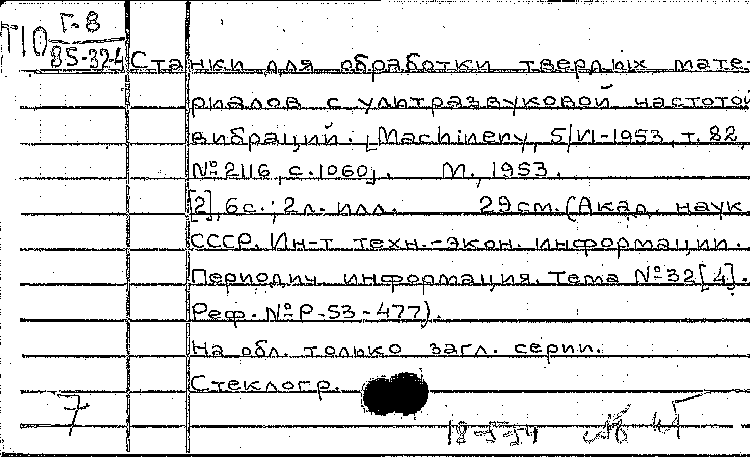 Т10 Г-8
85-324
Станки для обработки твердых мате-
риалов с ультразвуковой частотой
вибраций. [Machinery, 5/VI-1953, т. 82,
№ 2116, с. 1060]. М., 1953.
[2], 6 с.; 2 л. илл. 29 см. (Акад. наук
СССР. Ин-т техн.-экон. информации.
Периодич. информация. Тема № 32[4].
Реф. № Р-53-477).
На обл. только загл. серии.
Стеклогр.
7
18-5-54